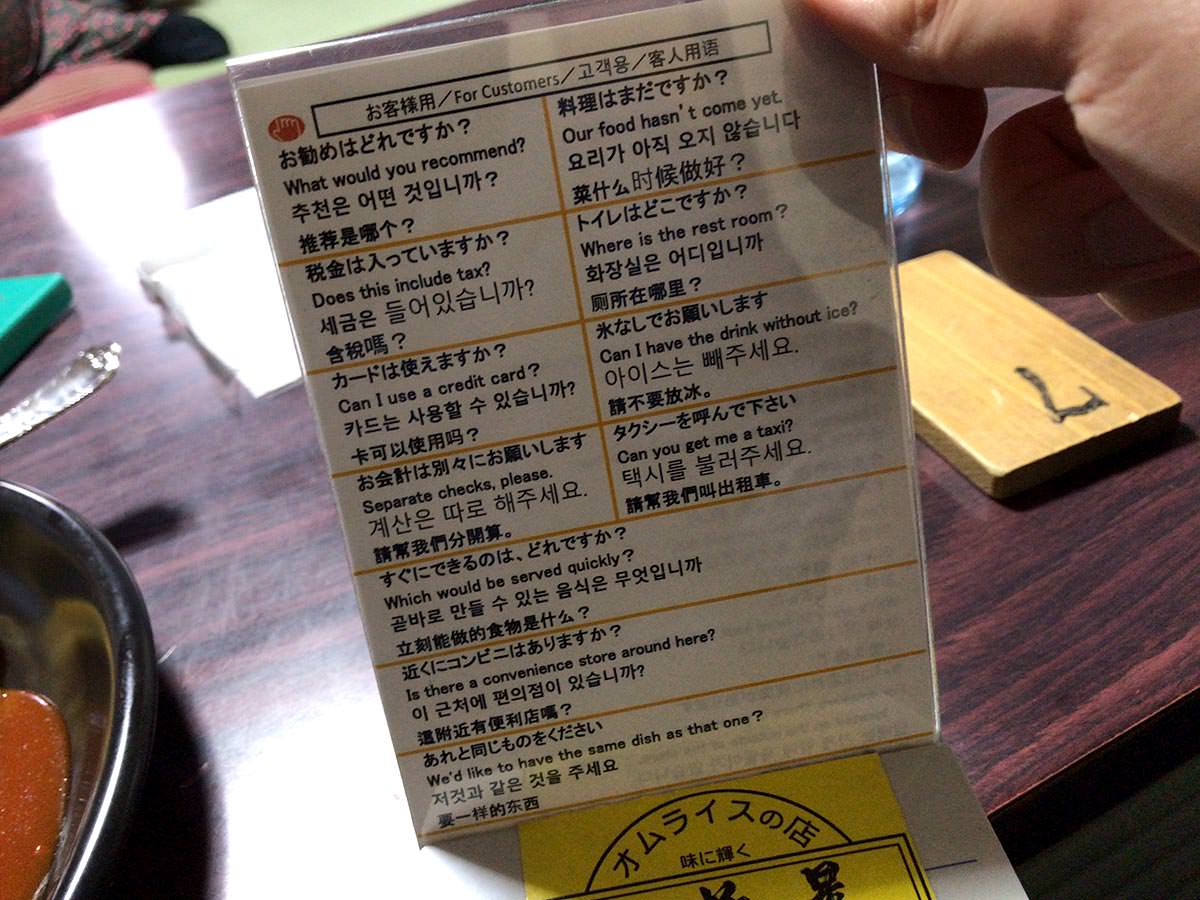 お客様用／For Customers／고객용／客人用语
お勧めはどれですか？
What would you recommend?
추천은 어떤 것입니까？
推荐是哪个？
料理はまだですか？
Our food hasn't come yet.
요리가 아직 오지 않습니다
菜什么时候做好？
税金は入っていますか？
Does this include tax?
세금은 들어있습니까?
含稅嗎？
トイレはどこですか？
Where is the rest room？
화장실은 어디입니까
厕所在哪里？
カードは使えますか？
Can I use a credit card？
카드는 사용할 수 있습니까?
卡可以使用吗？
氷なしでお願いします
Can I have the drink without ice?
아이스는 빼주세요.
請不要放冰。
お会計は別々にお願いします
Separate checks, please.
계산은 따로 해주세요.
請幫我們分開算。
タクシーを呼んで下さい
Can you get me a taxi?
택시를 불러주세요.
請幫我們叫出租車。
すぐにできるのは、どれですか？
Which would be served quickly？
곧바로 만들 수 있는 음식은 무엇입니까
立刻能做的食物是什么？
近くにコンビニはありますか？
Is there a convenience store around here?
이 근처에 편의점이 있습니까?
這附近有便利店嗎？
あれと同じものをください
We'd like to have the same dish as that one？
저것과 같은 것을 주세요
要一样的东西
オムライスの店
味に輝く